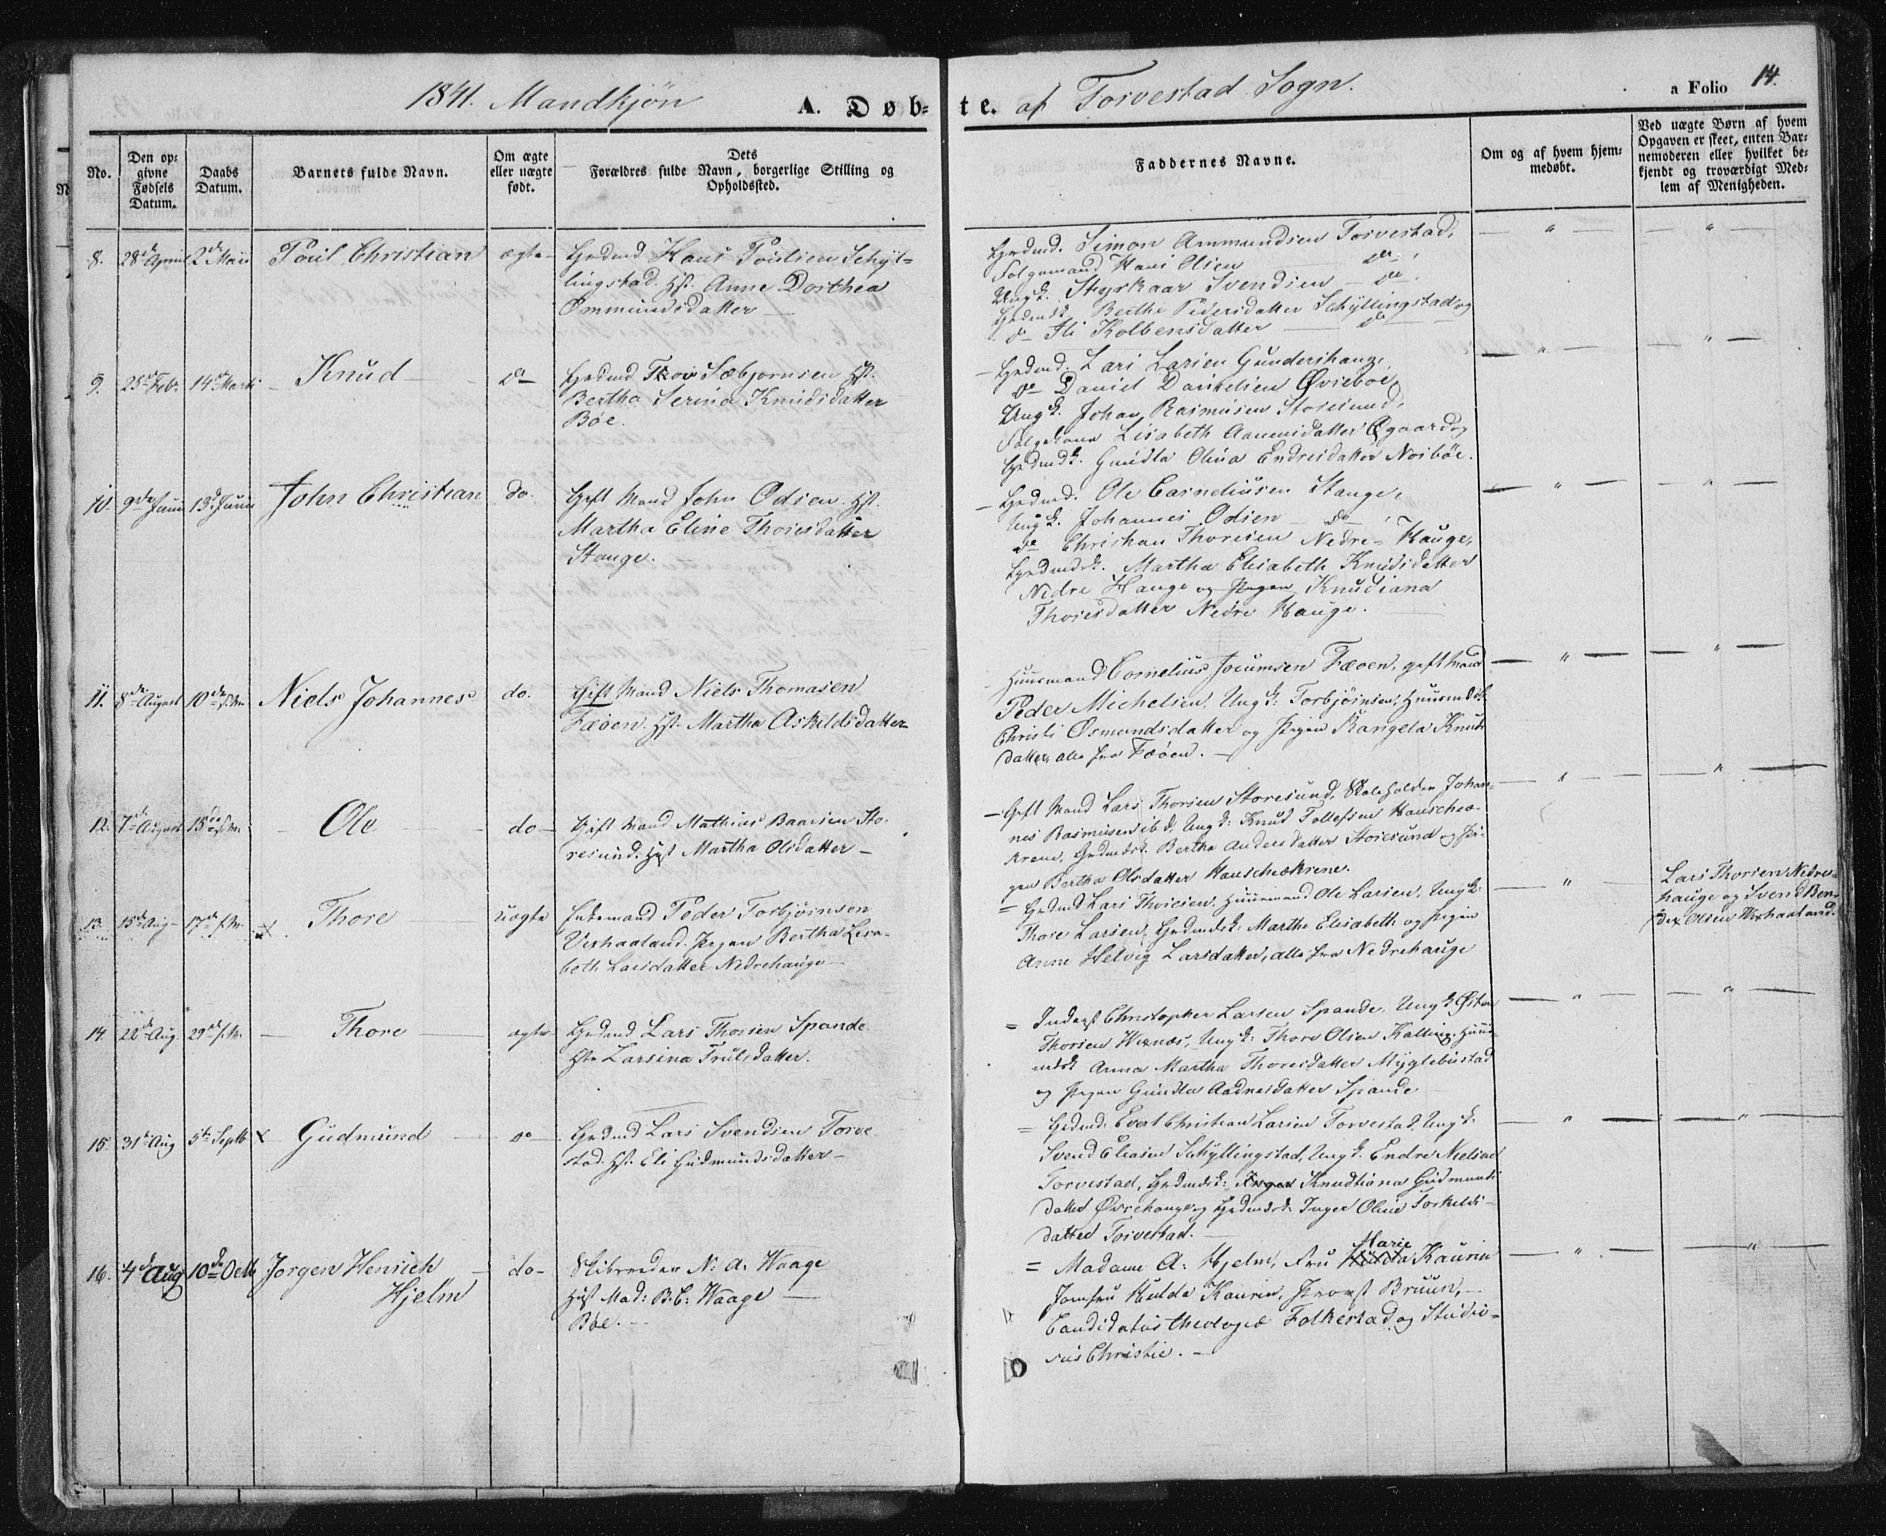 1841. Mandkjön A. Døb-
te. af Torvestad Sogn. a Folio 14.
No.
Den op-
givne
Fødsels
Datum.
Daabs
Datum.
Barnets fulde Navn.
Om ægte
eller uægte
født.
Dets
Forældres fulde Navn, borgerlige Stilling og
Opholdssted.
Faddernes Navne.
Om og af hvem hjem-
medøbt.
Ved uægte Børn af hvem
Opgaven er skeet, enten Bar-
nemoderen eller hvilket be-
kjendt og troværdigt Med-
lem af Menigheden.
8. 28de April 2de Maii Poul Christian ægte
Grdmd Hans Poulsen Schyl-
lingstad. Hst. Anne Dorthea
Ommundsdatter
Grdmd. Simon Ammundsen Torvestad,
Folgemand Hans Olsen do,
Ungk. Styrkaar Svendsen do
Grdmdsk Berthe Pedersdatter Schyllingstad og
do Eli Kolbensdatter do
9. 25de Feb. 14de Marts Knud do
Grdmd Tkov Sæbjornsen Hst.
Bertha Serina Knudsdatter
Böe.
Grdmd. Lars Larsen Gundershaug,
do Daniel Danielsen Øvreboe,
Ungk. Johan Rasmusen Storesund,
Folgekone Lisabeth Aanensdatter Øgaard og
Grdmdsk. Gundla Olina Endresdatter Norböe.
10. 9de Juni 13de Juni John Christian do.
Gift Mand John Odsen Hst.
Martha Eline Thoresdatter
Stange.
Grdmd. Ole Corneliusen Stange,
Ungk. Johannes Odsen do,
do Christian Thoresen Nedre-Hauge,
Grdmdsk. Martha Elisabeth Knudsdatter
Nedre Hauge og Pigen Knudiana
Thoresdatter Nedre Hauge.
11. 8de August 10de s.M. Niels Johannes do.
Gift Mand Niels Thomasen
Fæöen Hst. Martha Askildsdatter
Huusmand Cornelius Jocumsen Fæoen, gift Mand
Peder Michelsen, Ungk: Torbjörnsen, Huusmdsk
Christi Osmundsdatter og Pigen Rangela Knuds
datter alle fra Fæöen.
12. 7de August 15de s.M. Ole do
Gift Mand Mathias Baarsen Sto-
resund. Hst Martha Olsdatter
Gift Mand Lars Thorsen Storesund, Skoleholder Johan-
nes Rasmusen ibd, Ungk: Knud Tollefsen Hauscheæ-
krene, Grdmdsk. Bertha Andersdatter Storesund og Pi-
gen Bertha Olsdatter Hauscheækrene.
13. 15de Aug 17de s.M. x Thore uægte
Enkemand Peder Torbjørnsen
Vexhaaland. Pigen Bertha Lisa-
beth Larsdatter Nedrehauge
Grdmd Lars Thoresen, Huusmand Ole Larsen, Ungk:
Thore Larsen, Grdmdsk: Marthe Elisabeth og Pigen
Anne Helvig Larsdatter, alle fra Nedrehauge
Lars Thorsen Nedre-
hauge og Svend Ben-
dex Olsen Wexhaaland.
14. 22de Aug. 29de s.M. Thore ægte
Grdmd Lars Thorsen Spande
Hst. Larsina Trulsdatter.
Inderst Christopher Larsen Spande, Ungk Østen
Thorsen Wisnæs, Ungk: Thore Olsen Kalling, Huus-
mdsk Anna Martha Thoresdatter Myglebustad
og Pigen Gundla Aadnesdatter Spande
15. 31de Aug 5te Septb x Gudmund do
Grdmd Lars Svendsen Torve
stad. Hst. Eli Gudmundsdatter
Grdmd: Evert Christian Larsen Torvestad, Ungk:
Svend Eliasen Schyllingstad, Ungk. Endre Nielsen
Torvestad, Grdmdsk: Knudtiana Gudmunds
datter Øvrehauge og Grdmdsk: Inger Oline Torkelds
datter Torvestad.
16. 4de Aug 10de Octb Jorgen Henrich
Hjelm do
Skibsreder N. A. Waage
Hust Mad: B. C: Waage
Böe.
Madame A. Hjelm, Fru Marie Kaurin
Jomfru Hulda Kaurin, Provst Bruun,
Candidatus theologiæ Folkestad og Studio-
sus Christie.